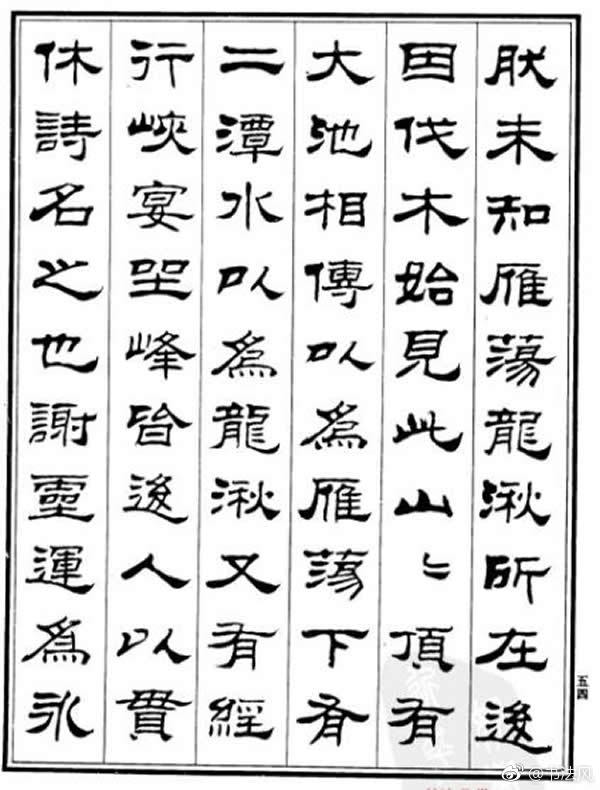 肰未知雁蕩龍湫所在後
因伐木始見此山〻頂有
大池相傳以爲雁蕩下有
二潭水以爲龍湫又有經
行峽宴坐峰皆後人以貫
休詩名之也謝靈運爲永
五四
@书法风